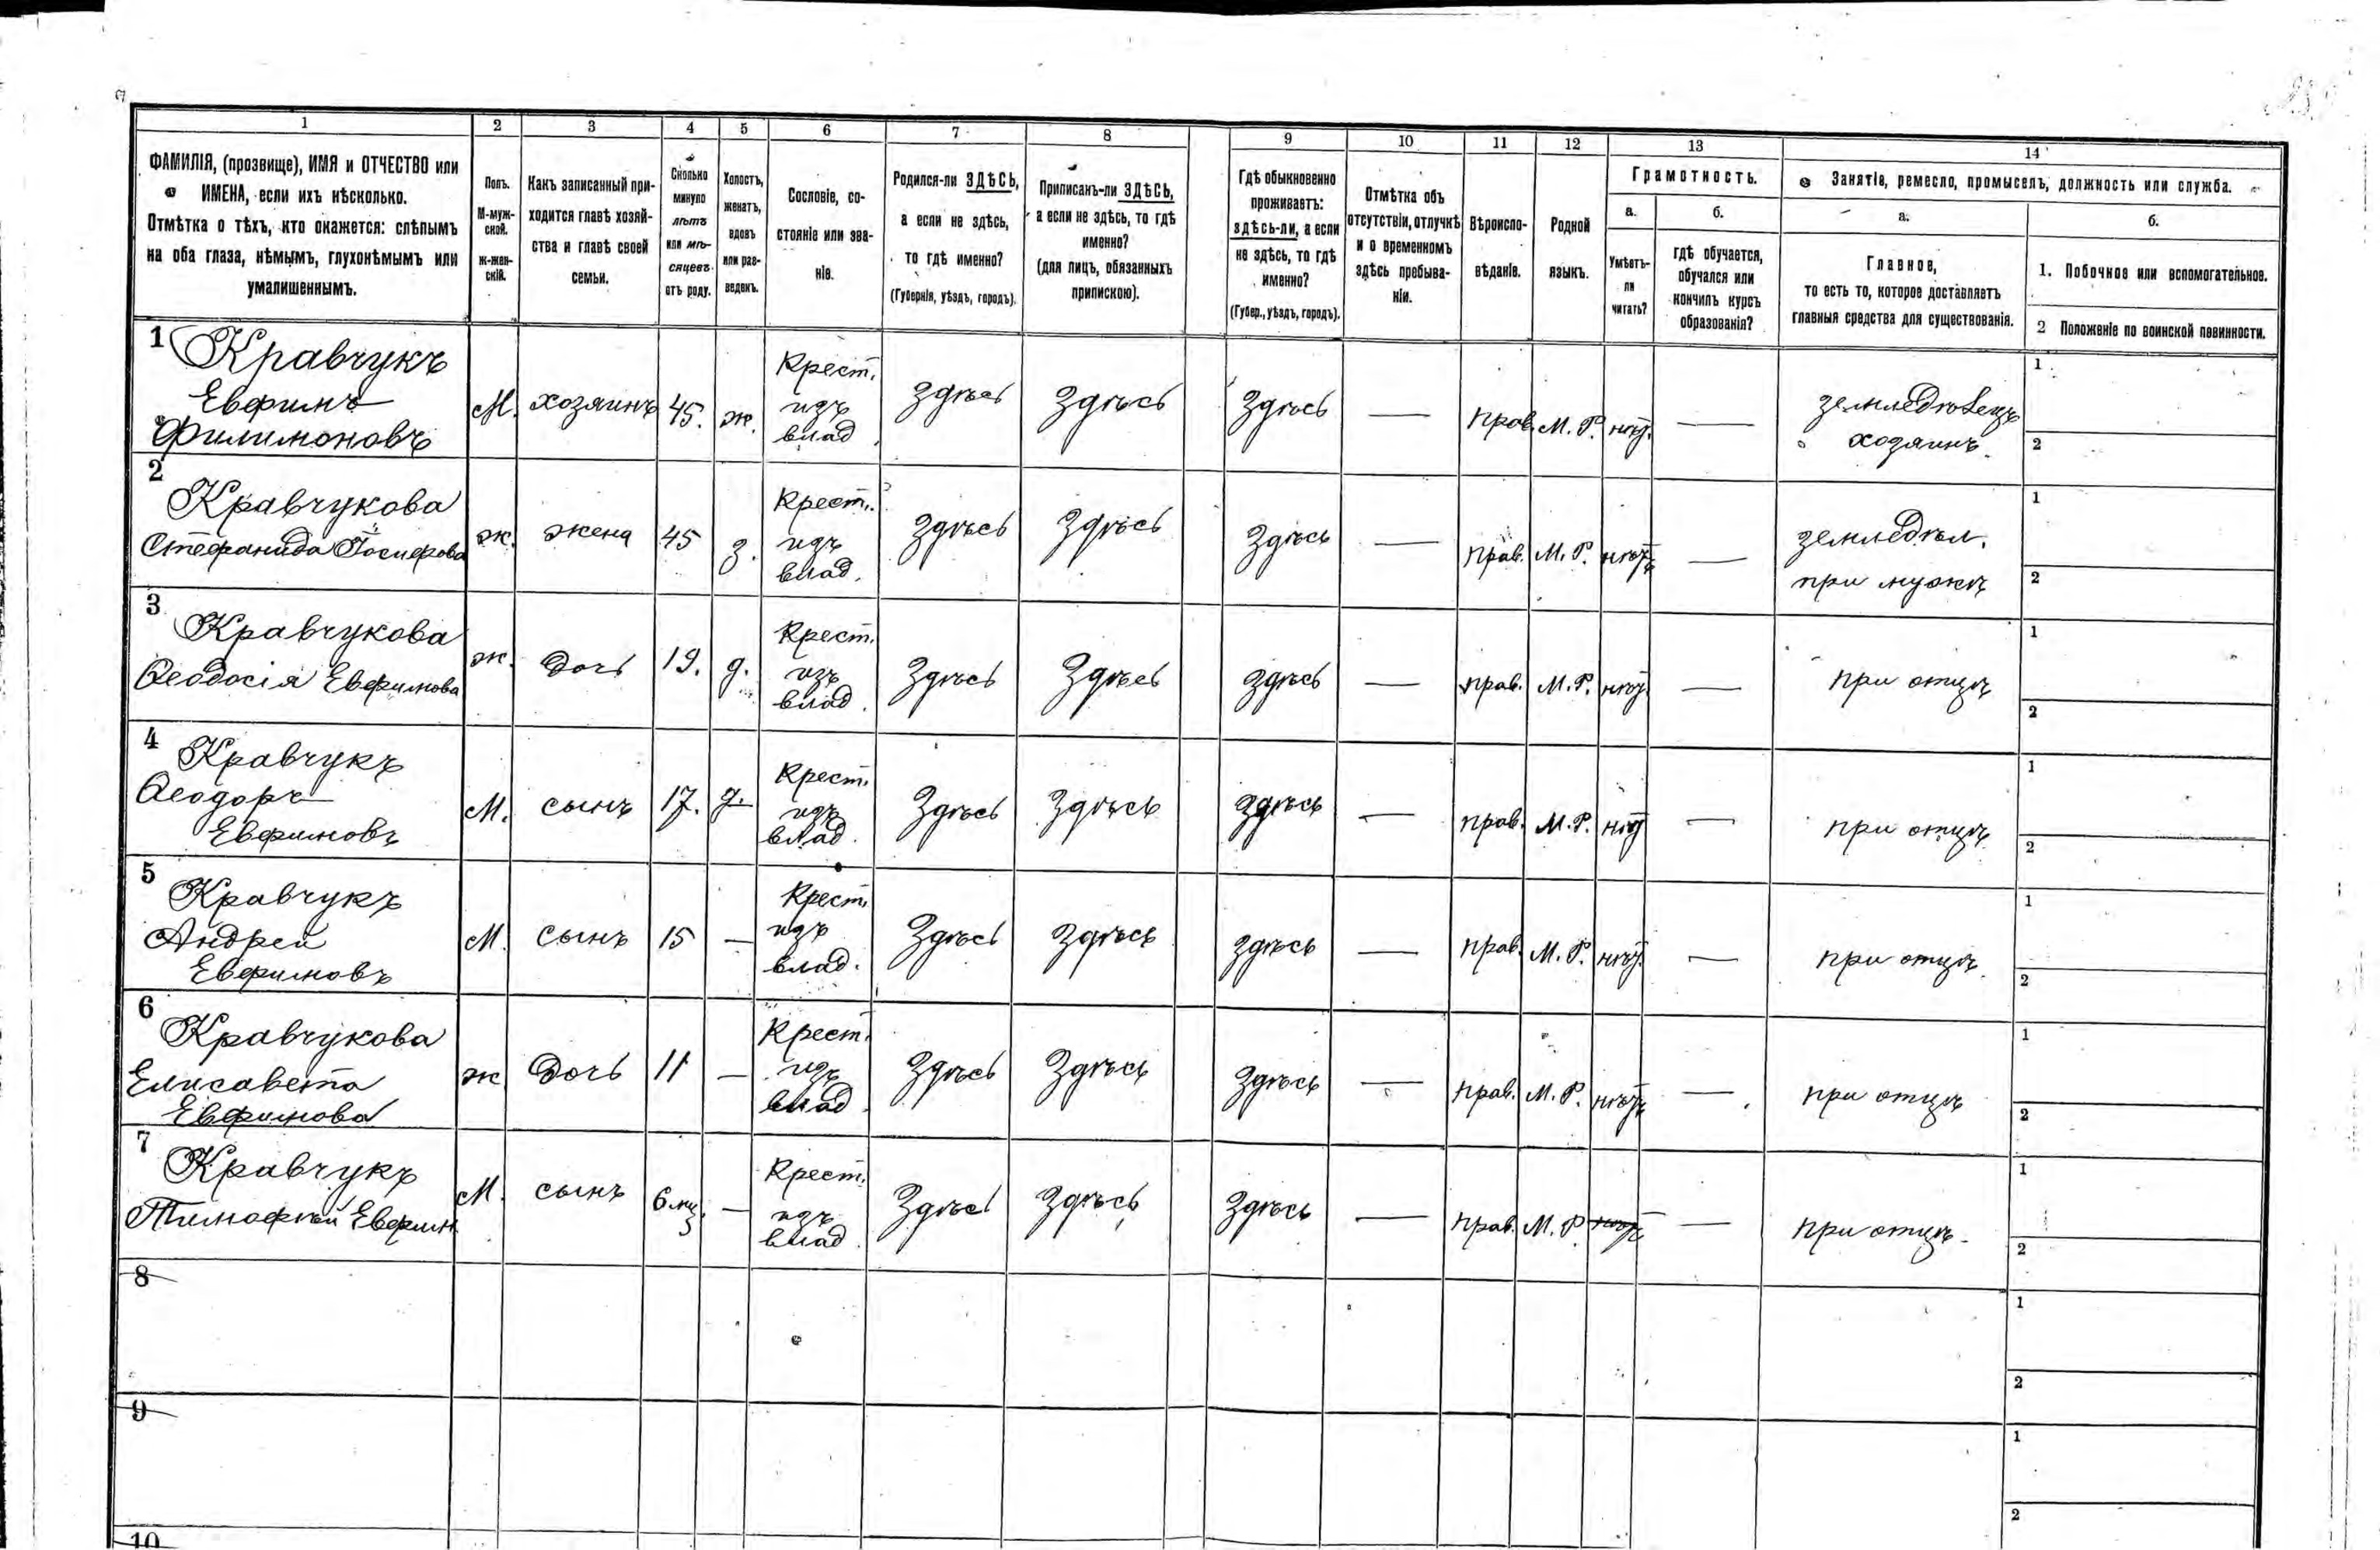 1 2 3 4 5 6 7 8 9 10 11 12 13 14
ФАМИЛІЯ, (прозвище), ИМЯ и ОТЧЕСТВО или
ИМЕНА, если ихъ нѣсколько.
Отмѣтка о тѣхъ, кто окажется: слѣпымъ
на оба глаза, нѣмымъ, глухонѣмымъ или
умалишеннымъ.
Полъ.
М-муж-
ской.
ж-жен-
скій.
Какъ записанный при-
ходится главѣ хозяй-
ства и главѣ своей
семьи.
Сколько
минуло
лѣтъ
или мѣ-
сяцевъ
отъ роду.
Холостъ,
женатъ,
вдовъ
или раз-
веденъ.
Сословіе, со-
стояніе или зва-
ніе.
Родился-ли ЗДѢСЬ,
а если не здѣсь,
то гдѣ именно?
(Губернія, уѣздъ, городъ).
Приписанъ-ли ЗДѢСЬ,
а если не здѣсь, то гдѣ
именно?
(для лицъ, обязанныхъ
припискою).
Гдѣ обыкновенно
проживаетъ:
здѣсь-ли, а если
не здѣсь, то гдѣ
именно?
(Губер., уѣздъ, городъ).
Отмѣтка объ
отсутствіи, отлучкѣ
и о временномъ
здѣсь пребыва-
ніи.
Вѣроиспо-
вѣданіе.
Родной
языкъ.
Грамотность.
а.
Умѣетъ-
ли
читать?
б.
гдѣ обучается,
обучался или
кончилъ курсъ
образованія?
Занятіе, ремесло, промыселъ, должность или служба.
а.
Главное,
то есть то, которое доставляетъ
главныя средства для существованія.
б.
1. Побочное или вспомогательное.
2 Положеніе по воинской повинности.
1 Кравчукъ
Евфимъ
Филимоновъ
М. хозяинъ 45. ж.
Крест.
изъ
влад.
здѣсь Здѣсь Здѣсь — прав. М. Р. нѣт. —
земледѣлецъ
хозяинъ.
1
2
2
Кравчукова
Стефанида
ж. жена 45 з.
Крест.
изъ
влад.
Здѣсь Здѣсь Здѣсь — прав. М. Р. нѣтъ —
земледѣл.
при мужѣ
1
2
3
Кравчукова
Ѳеодосія Евфимова
ж. дочь 19. д.
Крест.
изъ
влад.
Здѣсь Здѣсь здѣсь — прав. М. Р. нѣт —
при отцѣ
1
2
4
Кравчукъ
Ѳеодоръ
Евфимовъ
М. сынъ 17. д.
Крест.
изъ
влад.
Здѣсь Здѣсь здѣсь — прав. М. Р. нѣт —
при отцѣ
1
2
5
Кравчукъ
Андрей
Евфимовъ
М. сынъ 15 —
Крест.
изъ
влад.
Здѣсь здѣсь здѣсь — прав. М. Р. нѣт. —
при отцѣ.
1
2
6
Кравчукова
Елисавета
Евфимова
ж дочь 11 —
Крест.
изъ
влад.
Здѣсь Здѣсь Здѣсь — прав. М. Р. нѣтъ —
при отцѣ
1
2
7
Кравчукъ
Тимофѣй Евфим.
М. сынъ —
Крест.
изъ
влад.
Здѣсь Здѣсь Здѣсь — прав. М. Р нѣтъ —
при отцѣ.
1
2
8
1
2
9
1
2
10